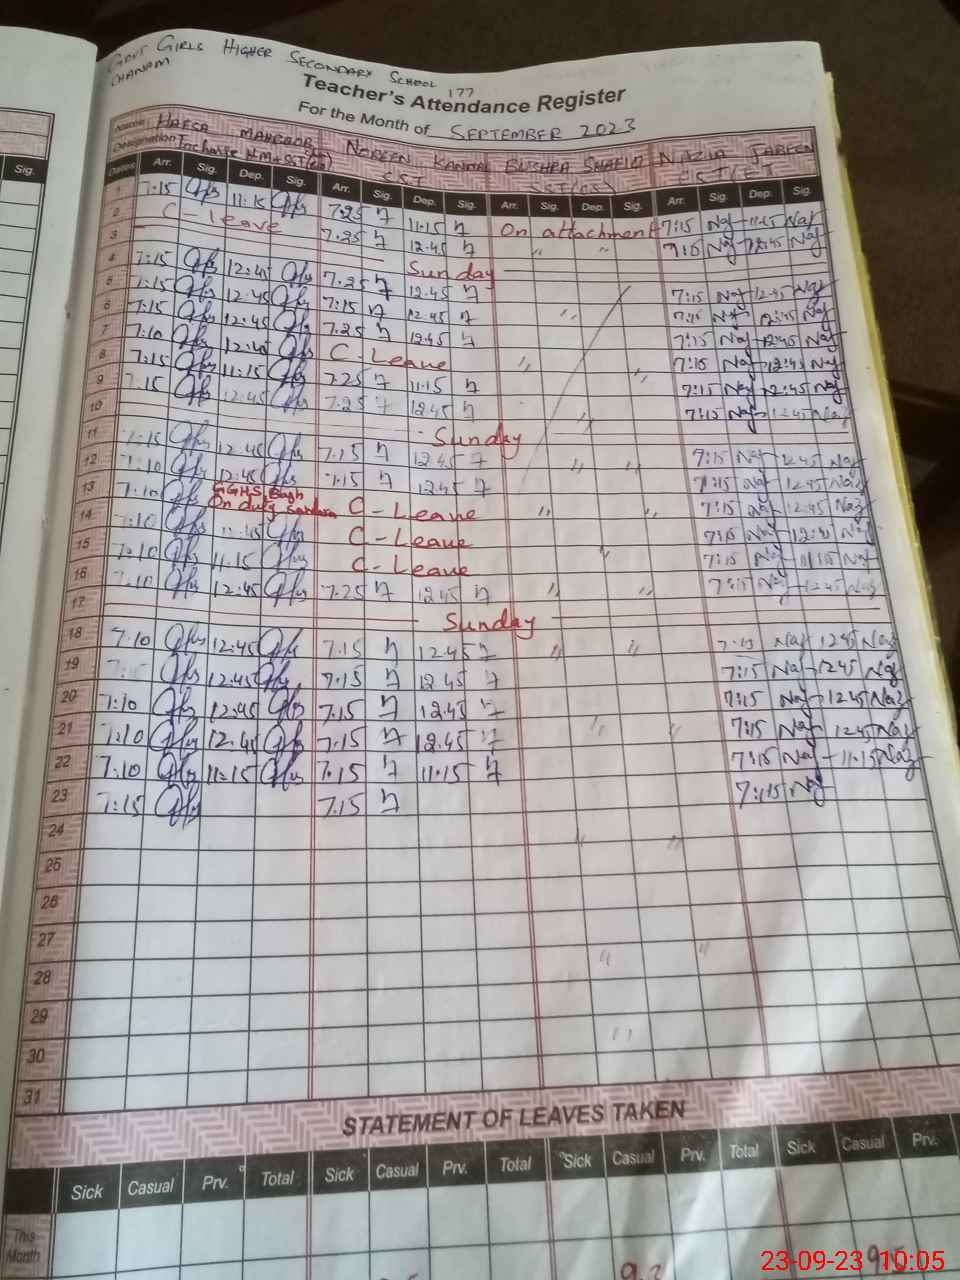 GOVT GIRLS HIGHER SECONDARY SCHOOL 177
CHANAM
Teacher's Attendance Register
For the Month of SEPTEMBER 2023
Name: HAFSA MAHBOOB NOREEN KANWAL BUSHRA SHAFIQ NAZIA JABEEN
Designation Incharge H.M+SST(GS) SST SST(GS)
Sig. Dates Arr. Sig. Dep. Sig. Arr. Sig. Dep. Sig. Arr. Sig. Dep. Sig. Arr. Sig. Dep. Sig.
1 7:15 11:15 7.25 11.15 On attachment 7:15 Naz 11:15 Naz
2 C - Leave 7.25 12.45 " " 7:15 Naz 12:45 Naz
3 Sunday
4 7:15 12:45 7.25 12.45 7:15 Naz 12:45 Naz
5 7:15 12:45 7.15 12.45 " 7:15 Naz 12:45 Naz
6 7:15 12:45 7.25 12.45 7:15 Naz 12:45 Naz
7 7:10 12:40 C - Leave " " 7:15 Naz 12:45 Naz
8 7:15 11:15 7.25 11.15 7:15 Naz 12:45 Naz
9 7:15 12:45 7.25 12.45 " 7:15 Naz 12:45 Naz
10 Sunday
11 7:15 12:45 7.15 12.45 " " 7:15 Naz 12:45 Naz
12 7:10 12:45 7.15 12.45 7:15 Naz 12:45 Naz
13 7:10 GGHS Bagh On duty C - Leave " " 7:15 Naz 12:45 Naz
14 7:10 12:45 C - Leave 7:15 Naz Naz
15 7:10 11:15 C - Leave " 7:15 Naz 11:15 Naz
16 7:10 12:45 7.25 12.45 " " 7:15 Naz 12:45 Naz
17 Sunday
18 7:10 12:45 7.15 12.45 " " 7:15 Naz 12 45 Naz
19 7:15 12:45 7.15 12.45 7:15 Naz 12 45 Naz
20 7:10 12:45 7.15 12.45 7:15 Naz 12 45 Naz
21 7:10 12:45 7.15 12.45 " " 7:15 Naz 12 45 Naz
22 7:10 11:15 7.15 11.15 7:15 Naz 11:15 Naz
23 7:15 7.15 7:15 Naz
24 " "
25
26
27 " "
28
29 "
30
31
STATEMENT OF LEAVES TAKEN
Sick Casual Prv. Total Sick Casual Prv. Total Sick Casual Prv. Total Sick Casual Prv.
This Month
23-09-23 10:05